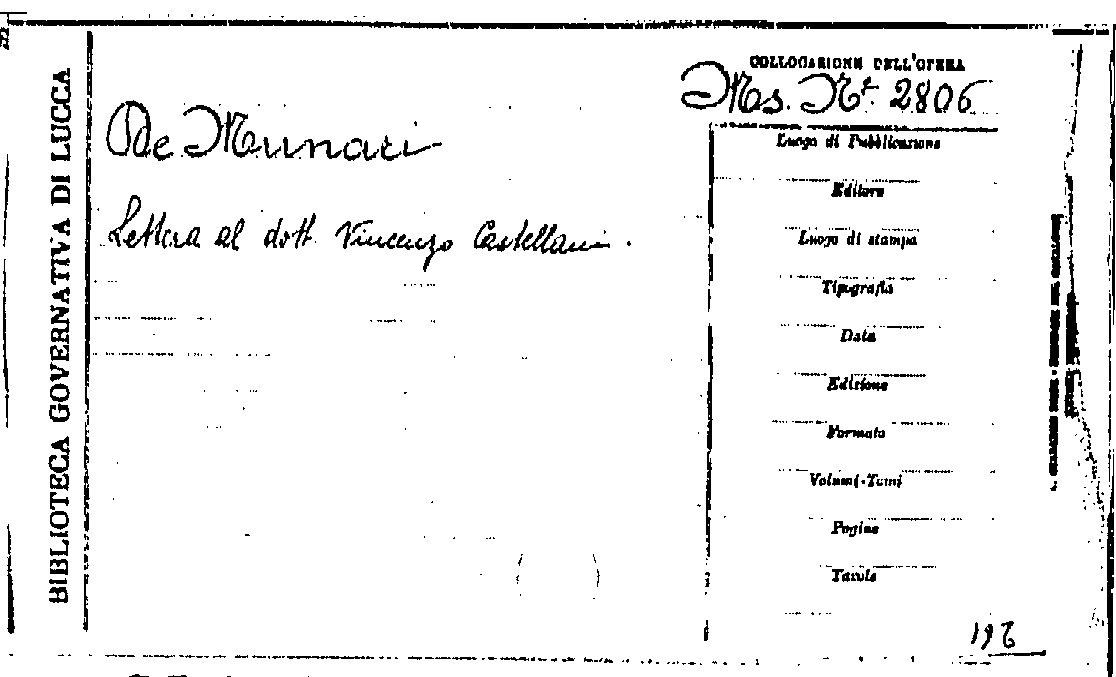 BIBLIOTECA GOVERNATIVA DI LUCCA
COLLOCAZIONE DELL'OPERA
Ms. Nr. 2806
De Munari
Lettera al dott. Vincenzo Castellani.
Luogo di Pubblicazione
Editore
Luogo di stampa
Tipografia
Data
Edizione
Formato
Volumi-Tomi
Pagine
Tavole